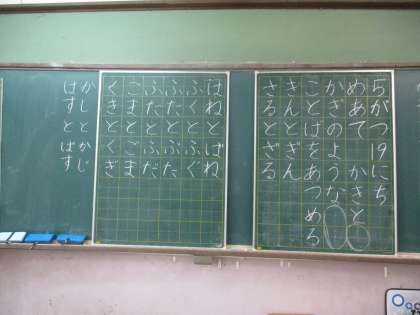 5がつ19にち
めあて かきと
かぎのような
ことばをあつめる
きんとぎん
さるとざる
はねとばね
ふくとふぐ
ふたとぶた
ふたとふだ
こまとごま
くきとくぎ
かしとかじ
はすとばす